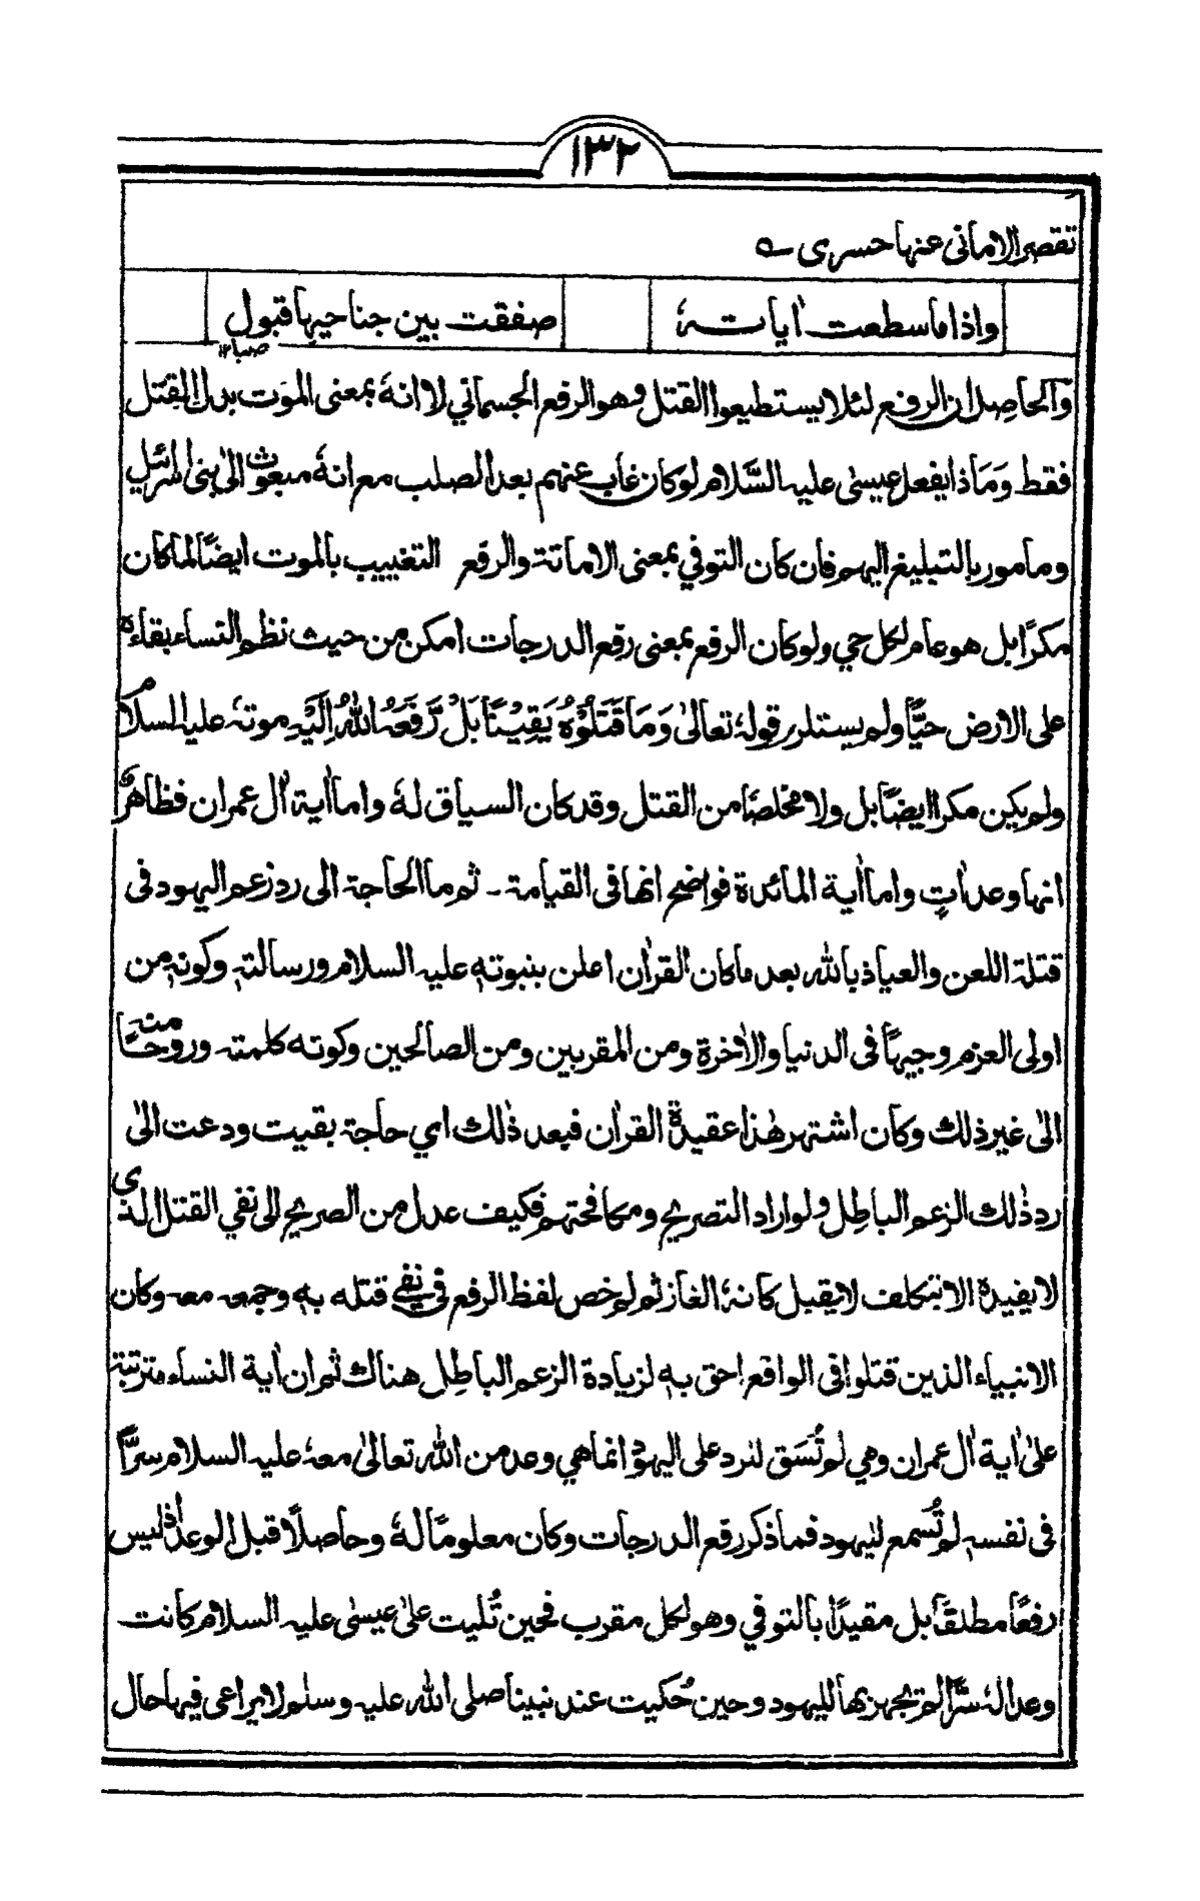 ١٣٢
تقصر الامانى عنها حسرى ؎
واذا ما سطعت اٰياتهٗ صفقت بين جناحيها قبول
صبا١٢
والحاصل ان الرفع لئلا يستطيعوا القتل وهو الرفع الجسماني لا انهٗ بمعنى الموت بدل القتل
فقط وَمَا ذا يفعل عيسىٰ عليه السَّلام لو كان غاب عنهم بعد الصلب مع انهٗ مبعوث الىٰ بنى اسرائيل
ومامور بالتبليغ اليهم فان كان التوفي بمعنى الاماتة والرفع التغييب بالموت ايضًا لما كان
مكرًا بل هو عام لكل حي ولو كان الرفع بمعنى رفع الدرجات امكن من حيث نظم النساء بقاءهٗ
على الارض حيًّا ولم يستلزم قولهٗ تعالىٰ وَمَا قَتَلُوْهُ يَقِيْنًا بَلْ رَّفَعَهُ اللهُ اِلَيْهِ موتهٗ عليه السلام
ولم يكن مكرا ايضًا بل ولا مخلصًا من القتل وقد كان السياق لهٗ واما اٰية اٰل عمران فظاهرٌ
انها وعد اٰتٍ واما اٰية المائدة فواضح انها فى القيامة ـ ثم ما الحاجة الى رد زعم اليهود فى
قتلة اللعن والعياذ بالله بعد ما كان القراٰن اعلن بنبوتهٖ عليه السلام ورسالتهٖ وكونهٖ من
اولى العزم وجيهًا فى الدنيا والاٰخرة ومن المقربين ومن الصالحين وكونه كلمته وروحًا منه
الىٰ غير ذلك وكان اشتهر هٰذا عقيدة القراٰن فبعد ذٰلك اي حاجة بقيت ودعت الىٰ
رد ذٰلك الزعم الباطل ولو اراد التصريح ومكافحتهم فكيف عدل من الصريح الى نفي القتل الذى
لا يفيده الا بتكلف لا يقبل كانهٗ الغاز ثم لم خص لفظ الرفع فى نفى قتله بهٖ وجمعه معه وكان
الانبياء الذين قتلوا فى الواقع احق بهٖ لزيادة الزعم الباطل هناك ثم ان اٰية النساء مترتبة
علىٰ اٰية اٰل عمران وهي لم تُسَق لترد على اليهود انما هي وعد من الله تعالىٰ معهٗ عليه السلام سِرًّا
فى نفسهٖ لم تُسمع لليهود فما ذكر رفع الدرجات وكان معلومًا لهٗ وحاصلًا قبل الوعد اذ ليس
رفعًا مطلقًا بل مقيدًا بالتوفي وهو لكل مقرب فحين تُليت علىٰ عيسىٰ عليه السلام كانت
وعدا لهٗ سرًّا لم يجهز بها لليهود وحين حُكيت عند نبينا صلى الله عليه وسلم لا يراعى فيها حال